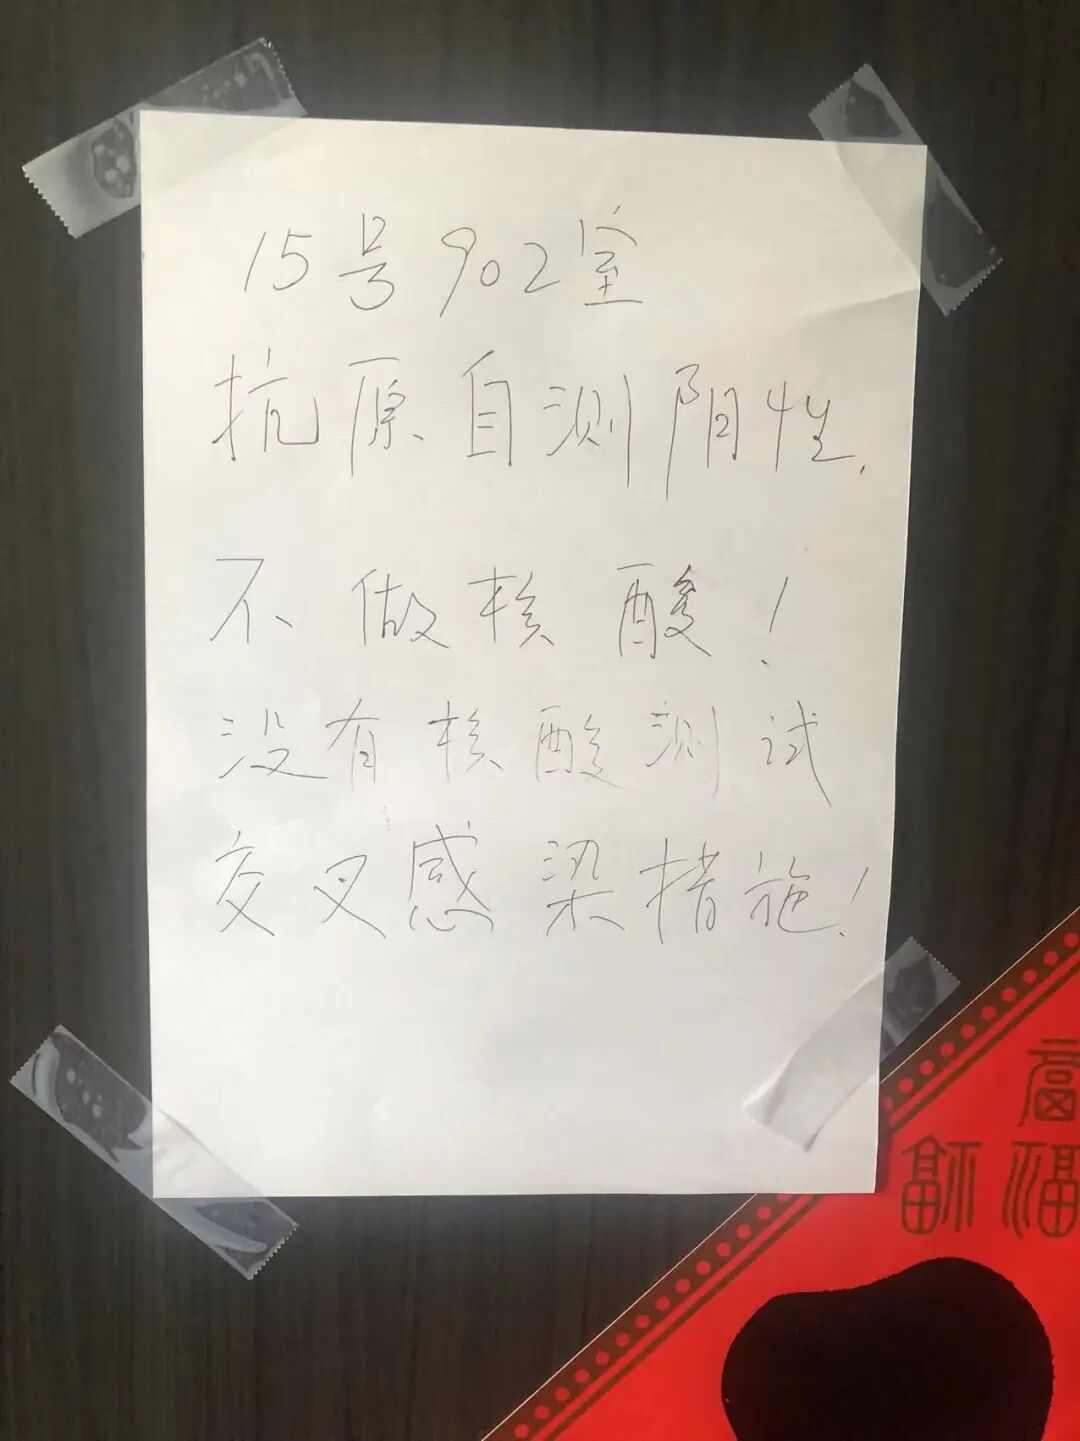 15号902室
抗原自测阴性.
不做核酸!
没有核酸测试
交叉感染措施!